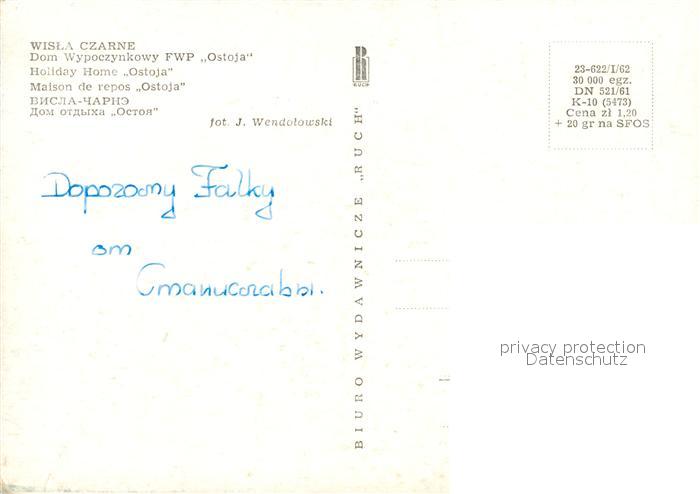 WISŁA CZARNE
Dom Wypoczynkowy FWP „Ostoja"
Holiday Home „Ostoja"
Maison de repos „Ostoja"
ВИСЛА-ЧАРНЭ
Дом отдыха „Остоя"
fot. J. Wendołowski
Дорогому Falky
от
Станиславы.
BIURO WYDAWNICZE „RUCH"
RUCH
23-622/I/62
30 000 egz.
DN 521/61
K-10 (5473)
Cena zł 1,20
+ 20 gr na SFOS
privacy protection
Datenschutz